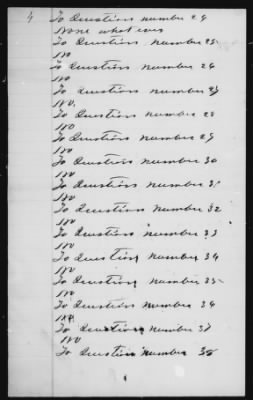 4
To Question number 24
None what ever
To Question number 25
No
To Question number 26
No
To Question number 27
No,
To Question number 28
No
To Question number 29
No
To Question number 30
No
To Question number 31
No
To Question number 32
No
To Question number 33
No
To Question number 34
No
To Question number 35
No
To Question number 36
No
To Question number 37
No
To Question number 38